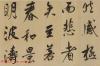 然感極
而悲者
矣至若
春和景
明波瀾